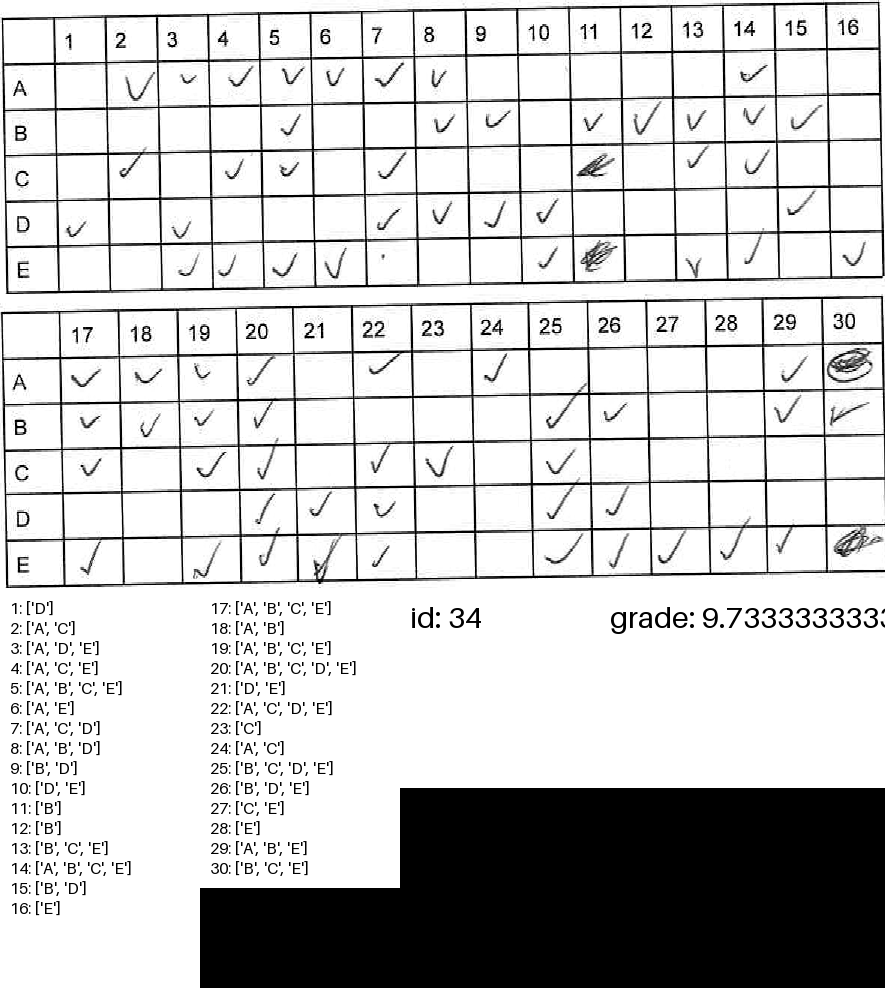 1 2 3 4 5 6 7 8 9 10 11 12 13 14 15 16
A ✓ ✓ ✓ ✓ ✓ ✓ ✓ ✓
B ✓ ✓ ✓ ✓ ✓ ✓ ✓ ✓
C ✓ ✓ ✓ ✓ ✓ ✓
D ✓ ✓ ✓ ✓ ✓ ✓ ✓
E ✓ ✓ ✓ ✓ ✓ ✓ ✓ ✓
17 18 19 20 21 22 23 24 25 26 27 28 29 30
A ✓ ✓ ✓ ✓ ✓ ✓ ✓
B ✓ ✓ ✓ ✓ ✓ ✓ ✓ ✓
C ✓ ✓ ✓ ✓ ✓ ✓
D ✓ ✓ ✓ ✓ ✓
E ✓ ✓ ✓ ✓ ✓ ✓ ✓ ✓ ✓ ✓
1: ['D']
2: ['A', 'C']
3: ['A', 'D', 'E']
4: ['A', 'C', 'E']
5: ['A', 'B', 'C', 'E']
6: ['A', 'E']
7: ['A', 'C', 'D']
8: ['A', 'B', 'D']
9: ['B', 'D']
10: ['D', 'E']
11: ['B']
12: ['B']
13: ['B', 'C', 'E']
14: ['A', 'B', 'C', 'E']
15: ['B', 'D']
16: ['E']
17: ['A', 'B', 'C', 'E']
18: ['A', 'B']
19: ['A', 'B', 'C', 'E']
20: ['A', 'B', 'C', 'D', 'E']
21: ['D', 'E']
22: ['A', 'C', 'D', 'E']
23: ['C']
24: ['A', 'C']
25: ['B', 'C', 'D', 'E']
26: ['B', 'D', 'E']
27: ['C', 'E']
28: ['E']
29: ['A', 'B', 'E']
30: ['B', 'C', 'E']
id: 34
grade: 9.7333333333